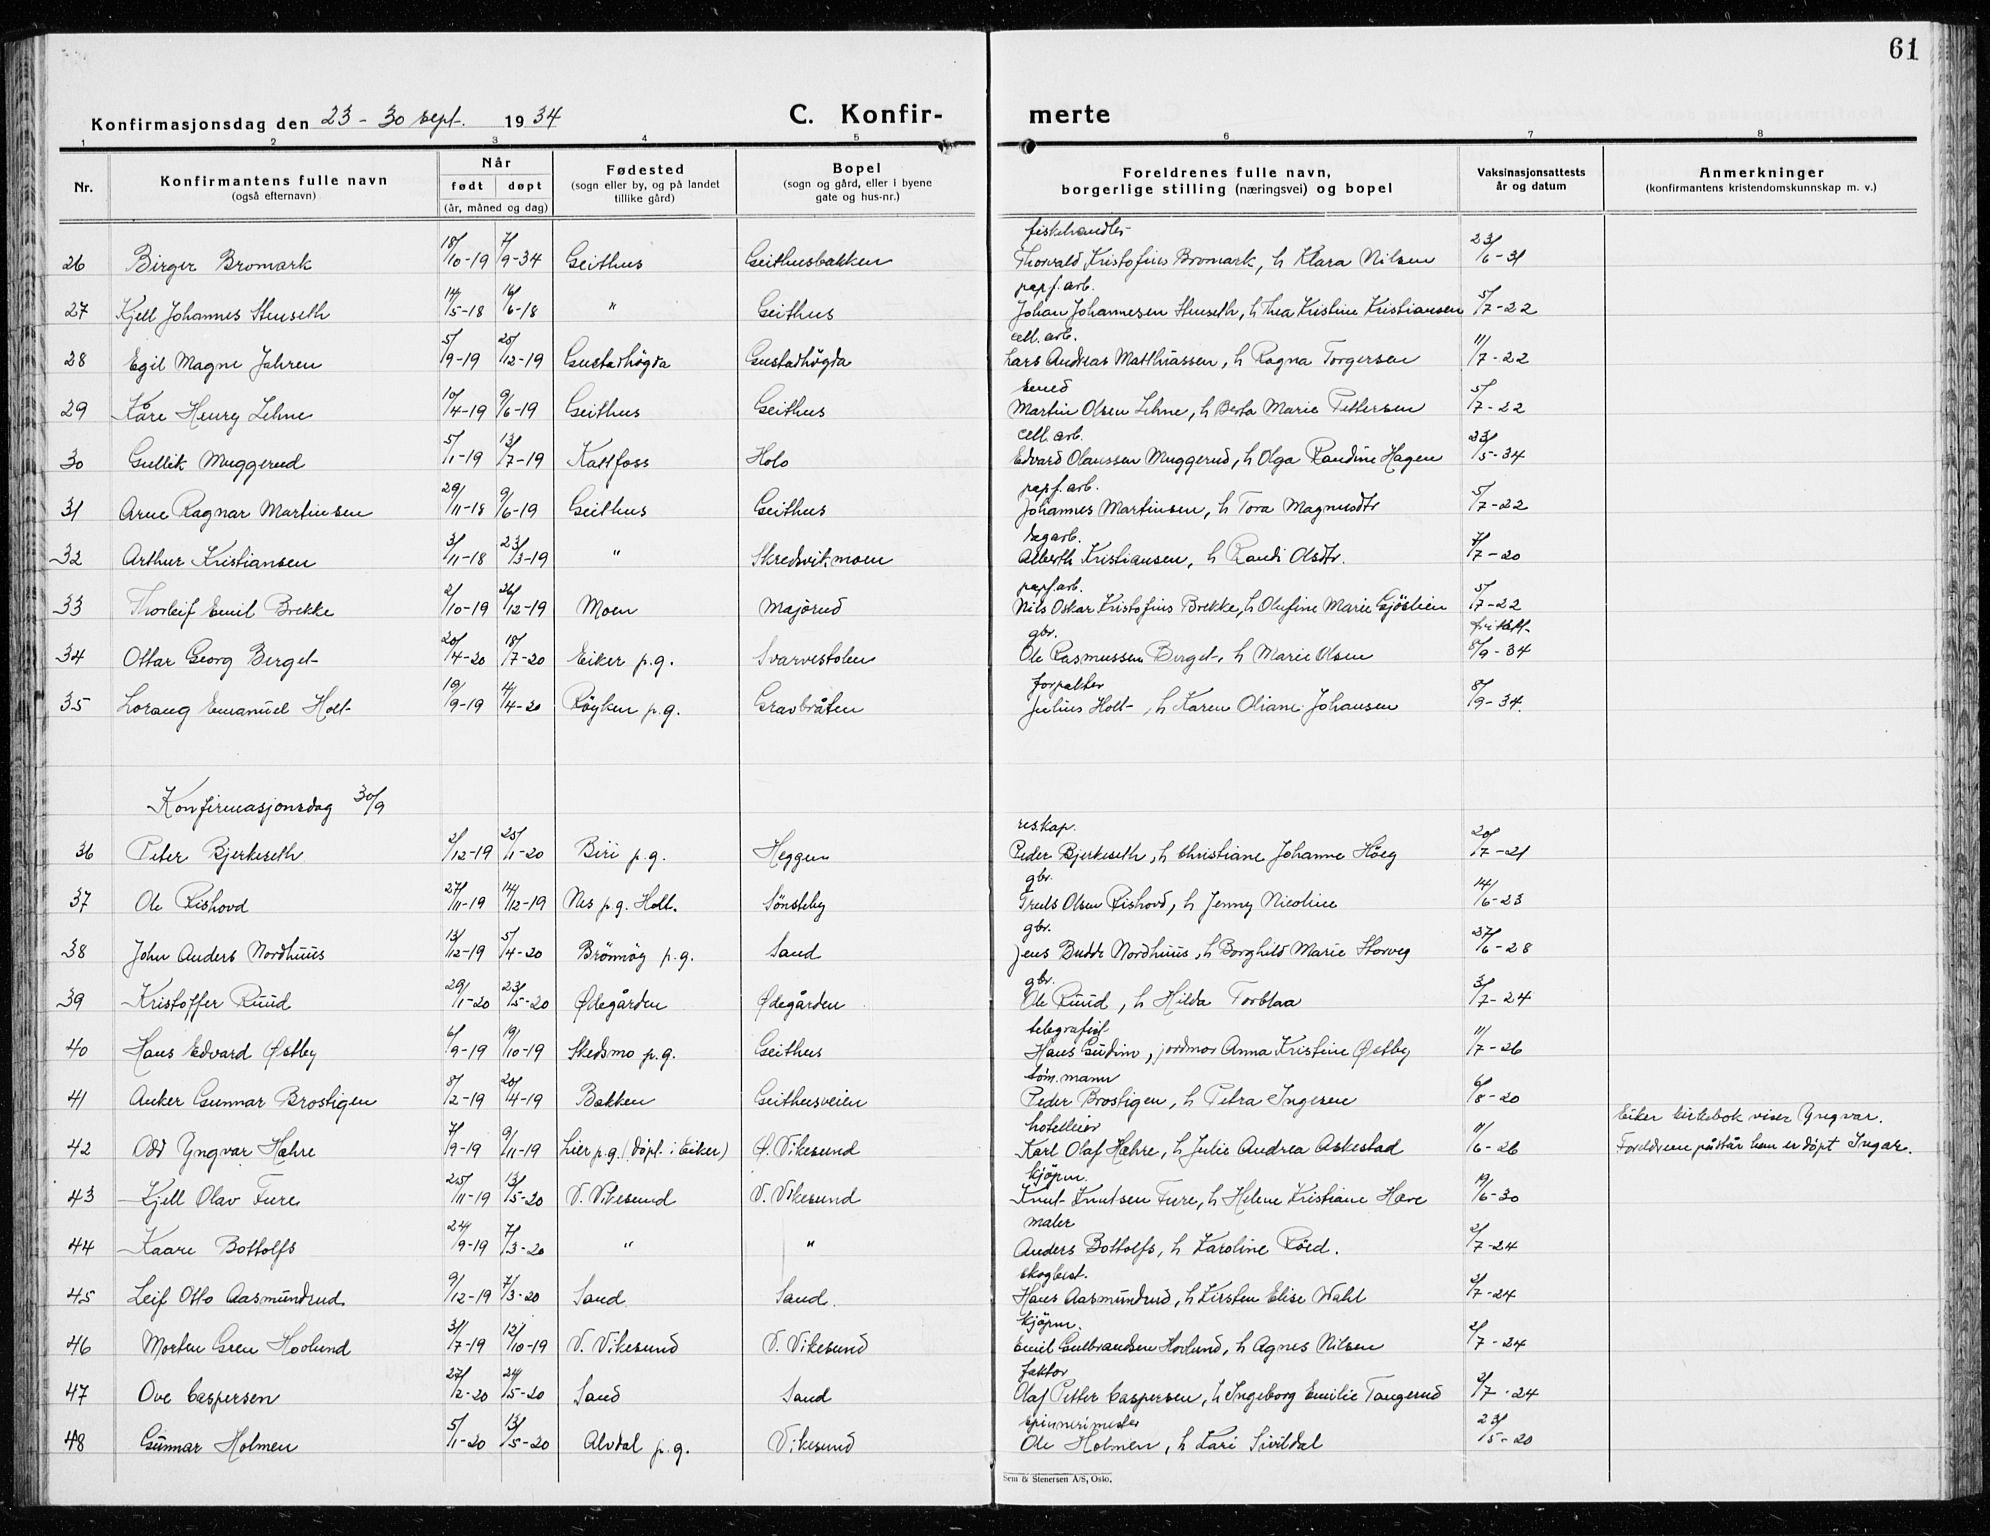 61
Konfirmasjonsdag den 23 - 30 sept. 1934 C. Konfir- merte
1 2 3 4 5 6 7 8
Nr. Konfirmantens fulle navn (også efternavn) Når født døpt (år, måned og dag) Fødested (sogn eller by, og på landet tillike gård) Bopel (sogn og gård, eller i byene gate og hus-nr.) Foreldrenes fulle navn, borgerlige stilling (næringsvei) og bopel Vaksinasjonsattests år og datum Anmerkninger (konfirmantens kristendomskunnskap m. v.)
fiskehandler
26 Birger Bromark 18/10-19 7/9-34 Geithus Geithusbakken Thorvald Kristofius Bromark, h Klara Nilsen 23/6-31
papf. arb.
27 Kjell Johannes Stenseth 14/5-18 16/6-18 " Geithus Johan Johannesen Stenseth, h Thea Kristine Kristiansen 5/7-22
cell. arb.
28 Egil Magne Jahren 5/9-19 25/12-19 Gustadhögda Gustadhögda Lars Andreas Matthiassen, h Ragna Torgersen 11/7-22
smed
29 Kåre Henry Lehne 10/4-19 9/6-19 Geithus Geithus Martin Olsen Lehne, h Berta Marie Pettersen 5/7-22
cell. arb.
30 Gullik Muggerud 5/1-19 13/7-19 Kattfoss Holo Edvard Olaussen Muggerud, h Olga Randine Hagen 23/5-34
papf. arb.
31 Arne Ragnar Martinsen 29/11-18 9/6-19 Geithus Geithus Johannes Martinsen, h Tora Magnusdtr 5/7-22
dagarb.
32 Arthur Kristiansen 3/11-18 23/3-19 " Skredsvik.moen Alberth Kristiansen, h Randi Olsdtr. 7/7-20
papf. arb.
33 Thorleif Emil Brekke 2/10-19 26/12-19 Moen Majörud Nils Oskar Kristofius Brekke, h Olufine Marie Gjöslien 5/7-22
gbr. fritatt
34 Ottar Georg Berget 20/4-20 18/7-20 Eiker p.g. Svarvestolen Ole Rasmussen Berget, h Marie Olsen 8/9-34
forpakter
35 Lorang Emanuel Holt 19/9-19 4/4-20 Röyken p.g. Gravbråten Julius Holt, h Karen Oliane Johansen 8/9-34.
Konfirmasjonsdag 30/9
res.kap.
36 Peter Bjerkeseth 2/12-19 25/1-20 Biri p.g. Heggen Peder Bjerkeseth, h Christiane Johanne Höeg 20/7-21
gbr.
37 Ole Rishovd 27/11-19 14/12-19 Nes p.g. Hall. Sönsteby Truls Olsen Rishovd, h Jenny Nicoline 14/6-23
gbr.
38 John Anders Nordhuus 13/12-19 5/4-20 Brönnöy p.g. Sand Jens Budde Nordhuus, h Borghild Marie Storveg 27/6-28
gbr.
39 Kristoffer Ruud 29/1-20 23/5-20 Ødegården Ødegården Ole Ruud, h Hilda Torblaa 3/7-24
telegrafist
40 Hans Edvard Østby 6/9-19 19/10-19 Skedsmo p.g. Geithus Hans Gudim, jordmor Anna Kristine Østby 11/7-26
töm.mann
41 Anker Gunnar Brostigen 8/2-19 20/4-19 Bakken Geithusveien Peder Brostigen, h Petra Ingerine 6/8-20
hotelleier Eiker kirkebok viser Yngvar.
42 Odd Yngvar Hæhre 7/9-19 9/11-19 Lier p.g. (döpt i Eiker) Ø. Vikesund Karl Olaf Hæhre, h Julie Andrea Askestad 11/6-26 Foreldrene påstår han er döpt Ingar.
kjöpm.
43 Kjell Olav Fure 25/11-19 13/5-20 V. Vikesund V. Vikesund Knut Knutsen Fure, h Helene Kristiane Hæve 19/6-30
maler
44 Kaare Bottolfs 24/9-19 7/3-20 " " Anders Bottolfs, h Karoline Röed. 2/7-24
skogbest.
45 Leif Otto Aasmundrud 9/12-19 7/3-20 Sand Sand. Hans Aasmundrud, h Kirsten Elise Wahl 2/7-24
kjöpm.
46 Morten Gren Hovlund 31/7-19 12/10-19 V. Vikesund V. Vikesund Emil Gulbrandsen Hovlund, h Agnes Nilsen 2/7-24
faktor
47 Ove Caspersen 27/2-20 24/5-20 Sand Sand Olaf Petter Caspersen, h Ingeborg Emilie Tangerud 2/7-24
spinnerimester
48 Gunnar Holmen 5/1-20 13/5-20 Alvdal p.g. Vikesund Ole Holmen, h Kari Sivildal 23/5-20
Sem & Stenersen A/S, Oslo.